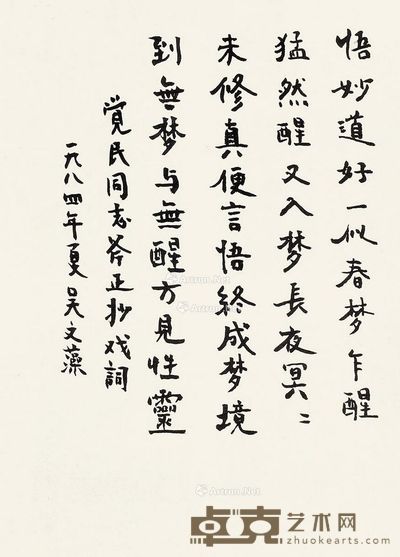 悟妙道好一似春梦乍醒
猛然醒又入梦長夜冥〻
未修真便言悟終成梦境
到無梦与無醒方見性靈
觉民同志斧正抄戏詞
一九八四年夏吴文藻
Artron.Net
Artron.Net
Artron.Net
卓克艺术网
zhuokearts.com